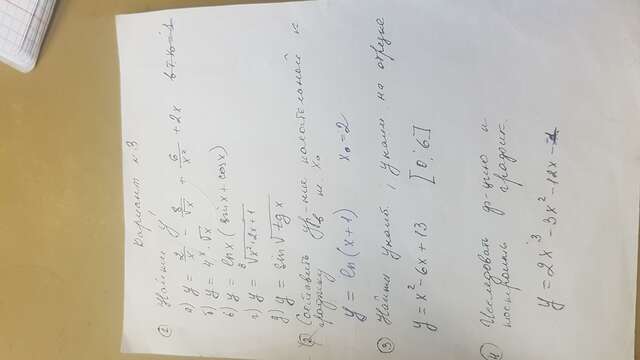 Вариант №3
① Найти y'
а) y = 2/x - 8/√x + 6/x² + 2x
б) y = 4x · √x
в) y = ln x · (sin x + cos x)
г) y = ³√(x² + 2x + 1)
д) y = sin √(tg x)
② Составить ур-ние касательной к
графику в т. x₀
y = ln(x+1)   x₀ = 2
③ Найти унаиб; унаим. на отрезке
y = x² - 6x + 13   [0; 6]
④ Исследовать ф-цию и
построить график
y = 2x³ - 3x² - 12x - 1